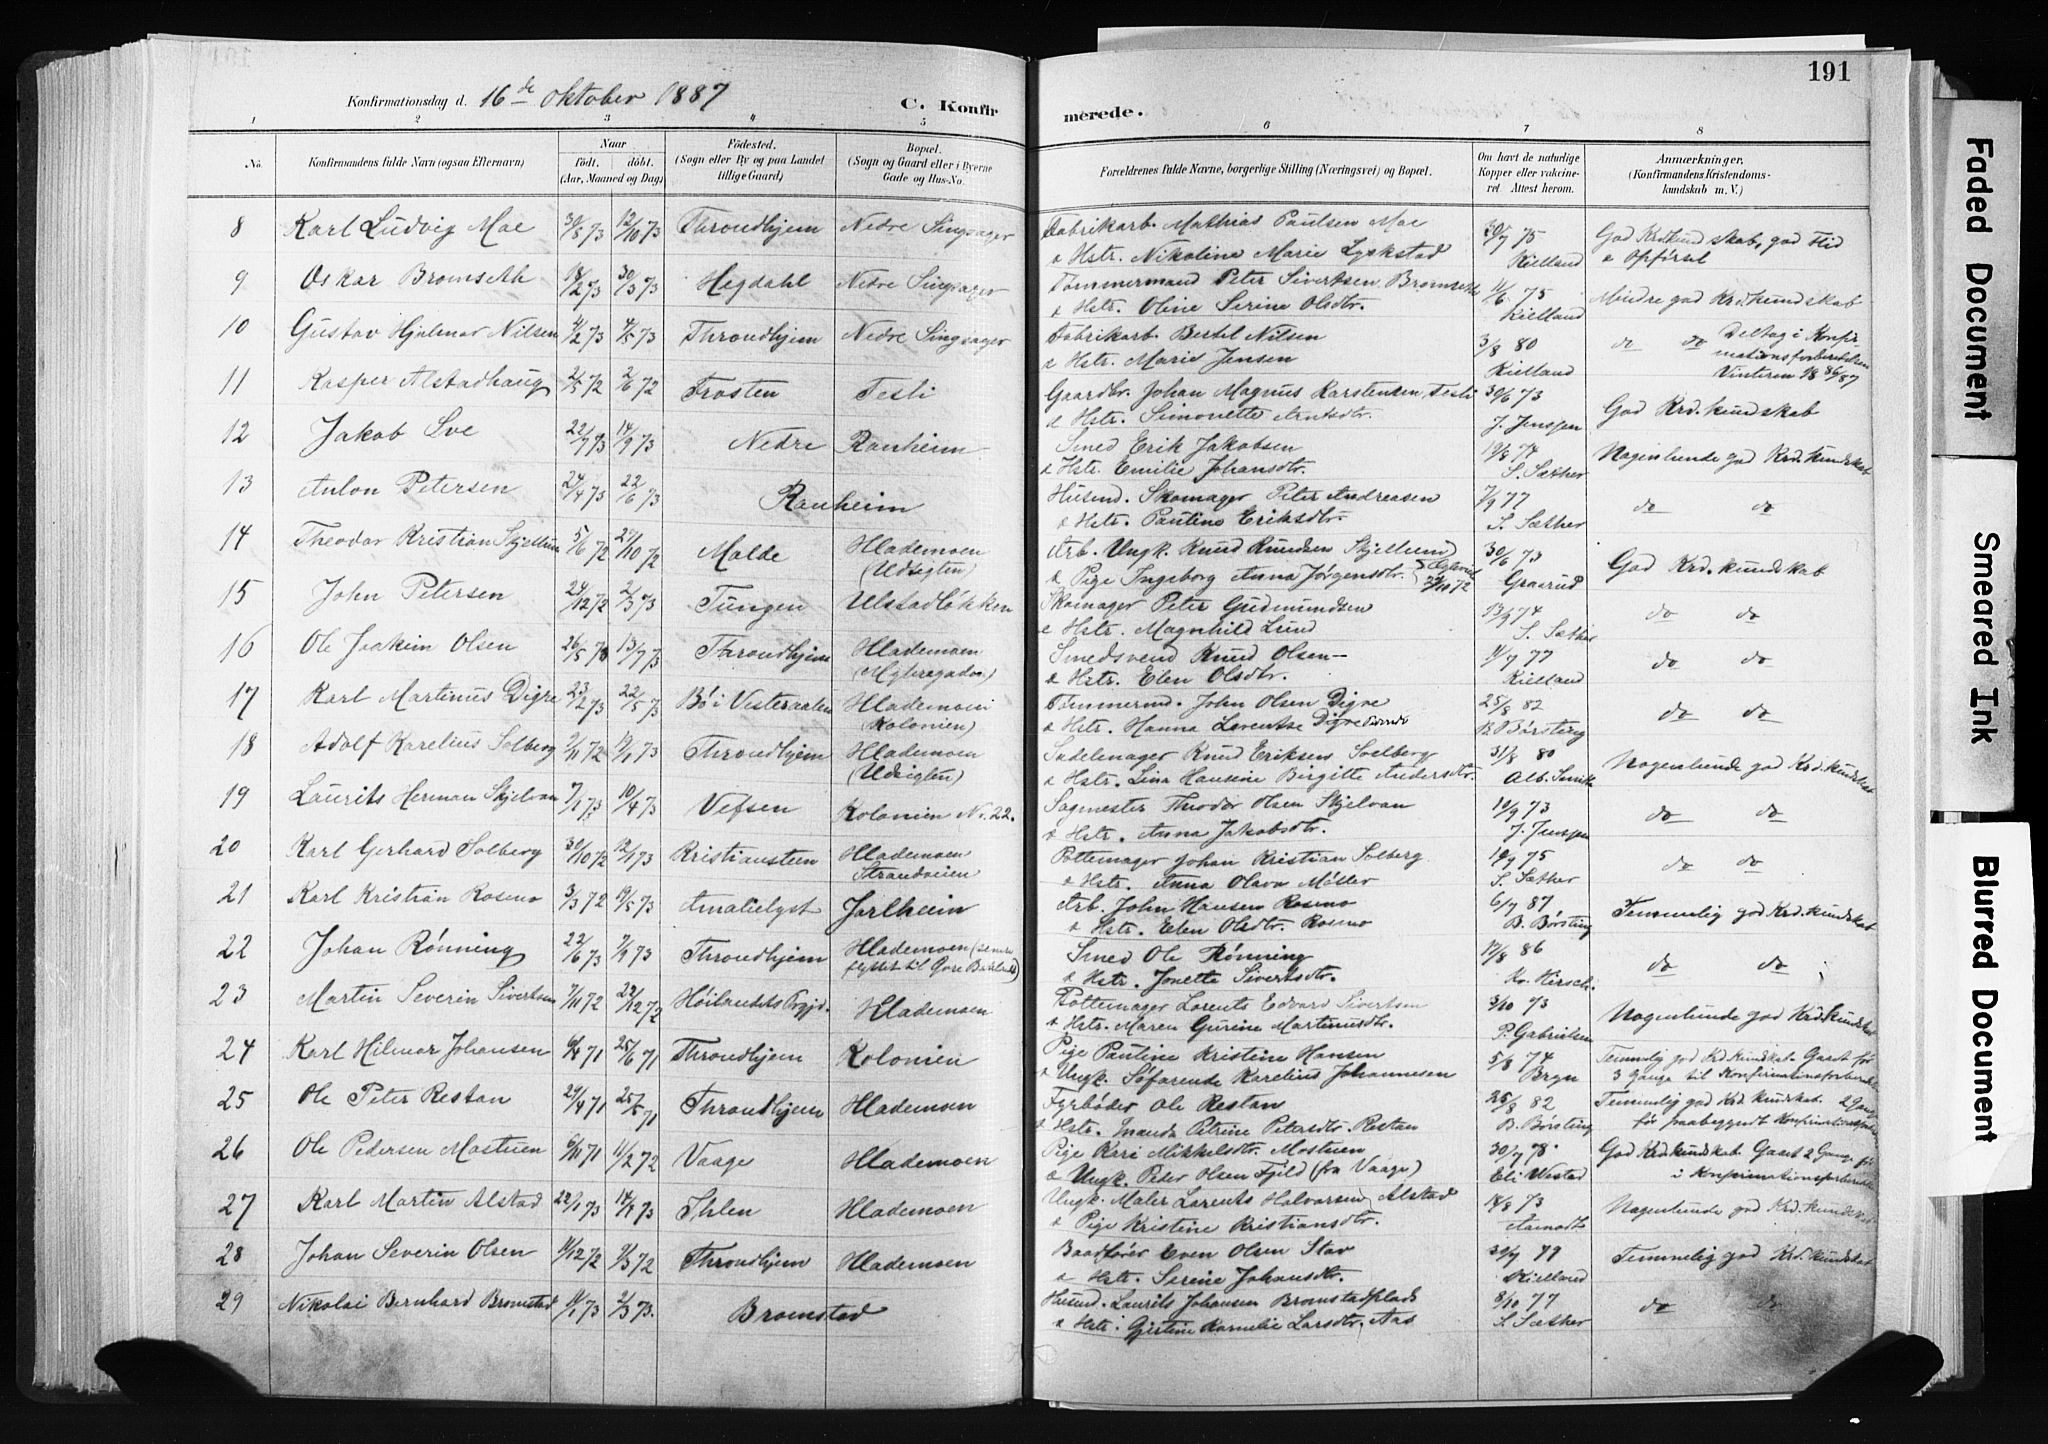 191
Konfirmationsdag d. 16de Oktober 1887
C. Konfirmerede.
1 2 3 4 5 6 7 8
No.
Konfirmandens fulde Navn (ogsaa Efternavn)
Naar
født. døbt.
(Aar, Maaned og Dag)
Fødested.
(Sogn eller By og paa Landet
tillige Gaard)
Bopæl.
(Sogn og Gaard eller i Byerne
Gade og Hus-No.
Forældrenes fulde Navne, borgerlige Stilling (Næringsvei) og Bopæl.
Om havt de naturlige
Kopper eller vakcine-
ret. Attest herom.
Anmærkninger.
(Konfirmandens Kristendoms-
kundskab m. V.)
8 Karl Ludvig Moe 30/8 73 12/10 73 Throndhjem Nedre Singsager Fabrikarb. Mathias Paulsen Moe 20/7 75 God Krd.kundskab, god Flid
& Hstr. Nikoline Marie Lyskstad Kielland & Opførsel
9 Oskar Bromseth 18/2 73 30/3 73 Hegdahl Nedre Singsager Tømmermand Peter Sivertsen Bromseth 11/6 75 Mindre god Krd.kundskab
& Hstr. Oline Serine Olsdtr. Kielland
10 Gustav Hjalmar Nilsen 4/2 73 4/5 73 Throndhjem Nedre Singsager Fabrikarb. Bertel Nilsen 3/8 80 do do Deltog i Konfir-
& Hstr. Marie Jensen Kielland mationsforberedelsen
Vinteren 1886/87
11 Kasper Alstadhaug 2/5 72 2/6 72 Frosten Tesli Gaardbr. Johan Magnus Karstensen Tesli 30/6 73 God Krd.kundskab
& Hstr. Simonette Arntsdtr. J. Jenssen
12 Jakob Sve 22/7 73 14/9 73 Nedre Ranheim Smed Erik Jakobsen 19/8 74 Nogenlunde god Krd.kundskab
& Hstr. Emilie Johansdtr. S. Sæther
13 Anton Petersen 24/4 73 22/6 73 Ranheim Husmd. Skomager Peter Andreasen 7/9 77 do do
& Hstr. Pauline Eriksdtr. S. Sæther
14 Theodor Kristian Skjellum 5/6 72 27/10 72 Molde Hlademoen Arb. Ungk. Knud Knudsen Skjellund 30/6 73 God Krd.kundskab
(Udsigten) & Pige Ingeborg Anna Jørgensdtr. 27/10 72 Graarud
15 John Petersen 24/12 72 2/3 73 Tungen Ulstadløkken Skomager Peter Gudmundsen 13/9 74 do do
& Hstr. Magnhild Lund S. Sæther
16 Ole Joakim Olsen 26/5 73 13/7 73 Throndhjem Hlademoen Smedsvend Knud Olsen 4/7 77 do do
& Hstr. Elen Olsdtr. Kielland
17 Karl Martinus Digre 23/2 73 22/5 73 Bø i Vesteraalen Hlademoen Tømmermd. John Olsen Digre 25/8 82 do do
(Kolonien) & Hstr. Hanna Lorentse Digre B. Børsting
18 Adolf Karelius Solberg 2/11 72 12/1 73 Throndhjem Hlademoen Sadelmager Knud Eriksen Soelberg 31/8 80 Nogenlunde god Krd.kundskab
(Udsigten) & Hstr. Lina Hansine Birgitte Andersdtr.
19 Laurits Herman Skjelvan 7/1 73 10/4 73 Vefsen Kolonien No. 22. Sagmester Theodor Olsen Skjelvan 10/9 73 do do
& Hstr. Anna Jakobsdtr. J. Jenssen
20 Karl Gerhard Solberg 30/10 72 12/1 73 Kristiansteen Hlademoen Pottemager Johan Kristian Solberg 10/9 75 do do
Strandveien & Hstr. Anna Olava Møller S. Sæther
21 Karl Kristian Rosmo 3/3 72 19/5 73 Amalielyst Jarlheim Arb. John Hansen Rosmo 6/7 87 Temmelig god Krd.kundskab
& Hstr. Elen Olsdtr. Rosmo B. Børsting
22 Johan Rønning 22/6 73 7/9 73 Throndhjem Hlademoen Smed Ole Rønning 17/8 86 do do
flyttet til & Hstr. Jonetta Sivertsdtr. Kv. Hirsch.
23 Martin Severin Sivertsen 7/11 72 22/12 72 Høilandets Prgjd. Hlademoen Pottemager Lorents Edvard Sivertsen 3/10 73 Nogenlunde god Krd.kundskab
& Hstr. Maren Gurine Martinusdtr. P. Gabrielsen
24 Karl Hilmar Johansen 6/4 71 25/6 71 Throndhjem Kolonien Pige Pauline Kristine Hansen 5/8 74 Temmelig god Krd.kundskab. Gaaet før
& Ungk. Søfarende Karelius Johannesen Bryn 3 Gange til Konfirmationsforberedelse
25 Ole Peter Restan 29/4 71 25/5 71 Throndhjem Hlademoen Fyrbøder Ole Restan 25/8 82 Temmelig god Krd.kundskab. 2 Gange
& Hstr. Petrine Petersdtr. Restan B. Børsting før paabegyndt Konfirmationsforb
26 Ole Pedersen Mostuen 6/11 71 11/2 72 Vaage Hlademoen Pige Kari Mikkelsdtr. Mostuen 30/7 78. God Krd.kundskab Gaaet 2 Gange før
& Ungk. Peder Olsen Fjeld (fra Vaage) Eli Westad i Konfirmationsforberedelse
27 Karl Martin Alstad 22/1 73 14/4 73 Ihlen Hlademoen Ungk. Maler Lorents Halvorsen Alstad 14/8 73 Nogenlunde god Krd.kundskab
& Pige Kristine Kristiansdtr.
28 Johan Severin Olsen 11/12 72 9/3 72 Throndhjem Hlademoen Baadfører Even Olsen Stav 30/7 79 Temmelig god Krd.kundskab
& Hstr. Serine Johansdtr. Kielland
29 Nikolai Bernhard Bromstad 11/1 73 2/3 73. Bromstad Husmd. Laurits Johansen Bromstadplads 8/10 77 do do
& Hstr. Gjertine Kornelie Larsdtr. Aas S. Sæther
Faded Document
Smeared Ink
Blurred Document